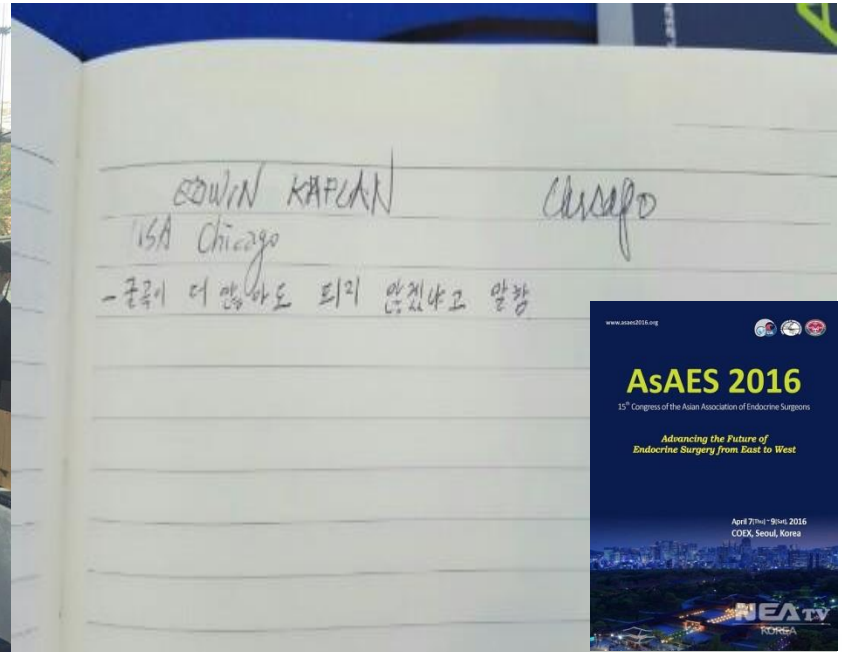 EDWIN KAPLAN Chicago
USA Chicago
- 굴곡이 더 많아도 되지 않겠냐고 말함
www.asaes2016.org
AsAES 2016
15th Congress of the Asian Association of Endocrine Surgeons
Advancing the Future of
Endocrine Surgery from East to West
April 7(Thu) - 9(Sat), 2016
COEX, Seoul, Korea
NEA TV
KOREA